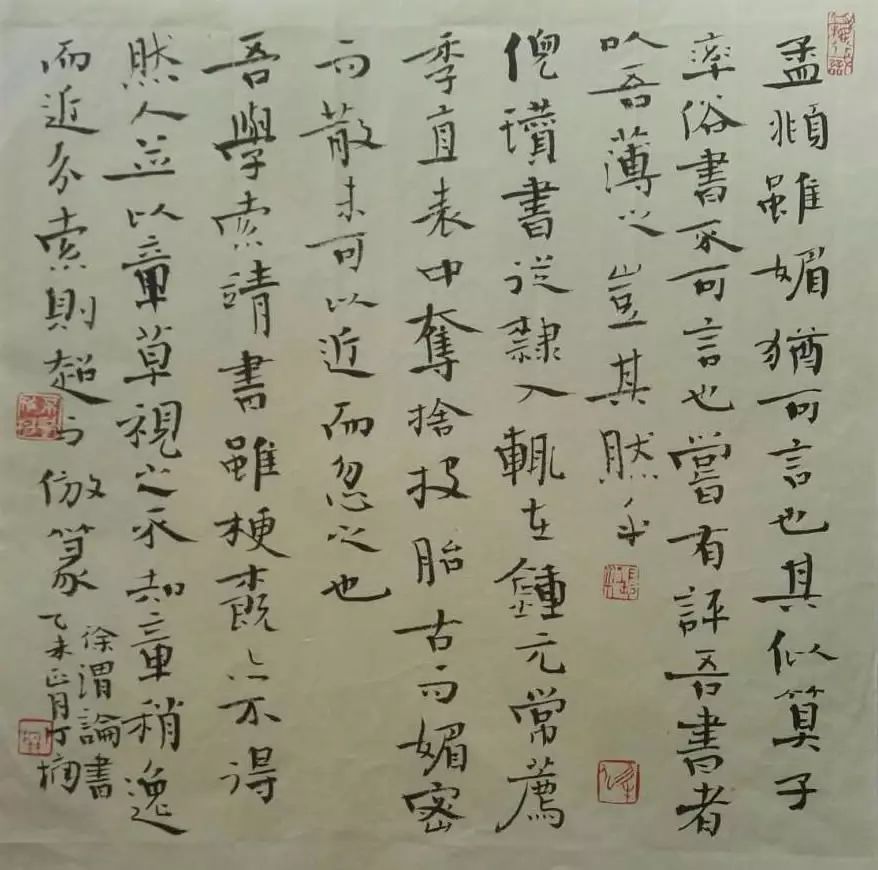 孟頫雖媚猶可言也其似算子
率俗書不可言也嘗有評吾書者
以吾薄之豈其然乎
倪瓚書從隸入輒在鍾元常薦
季直表中奪捨投胎古而媚密
而散未可以近而忽之也
吾學索靖書雖梗概亦不得
然人並以章草視之不知章稍逸
而近分索則超而倣篆
徐渭論書
乙未正月